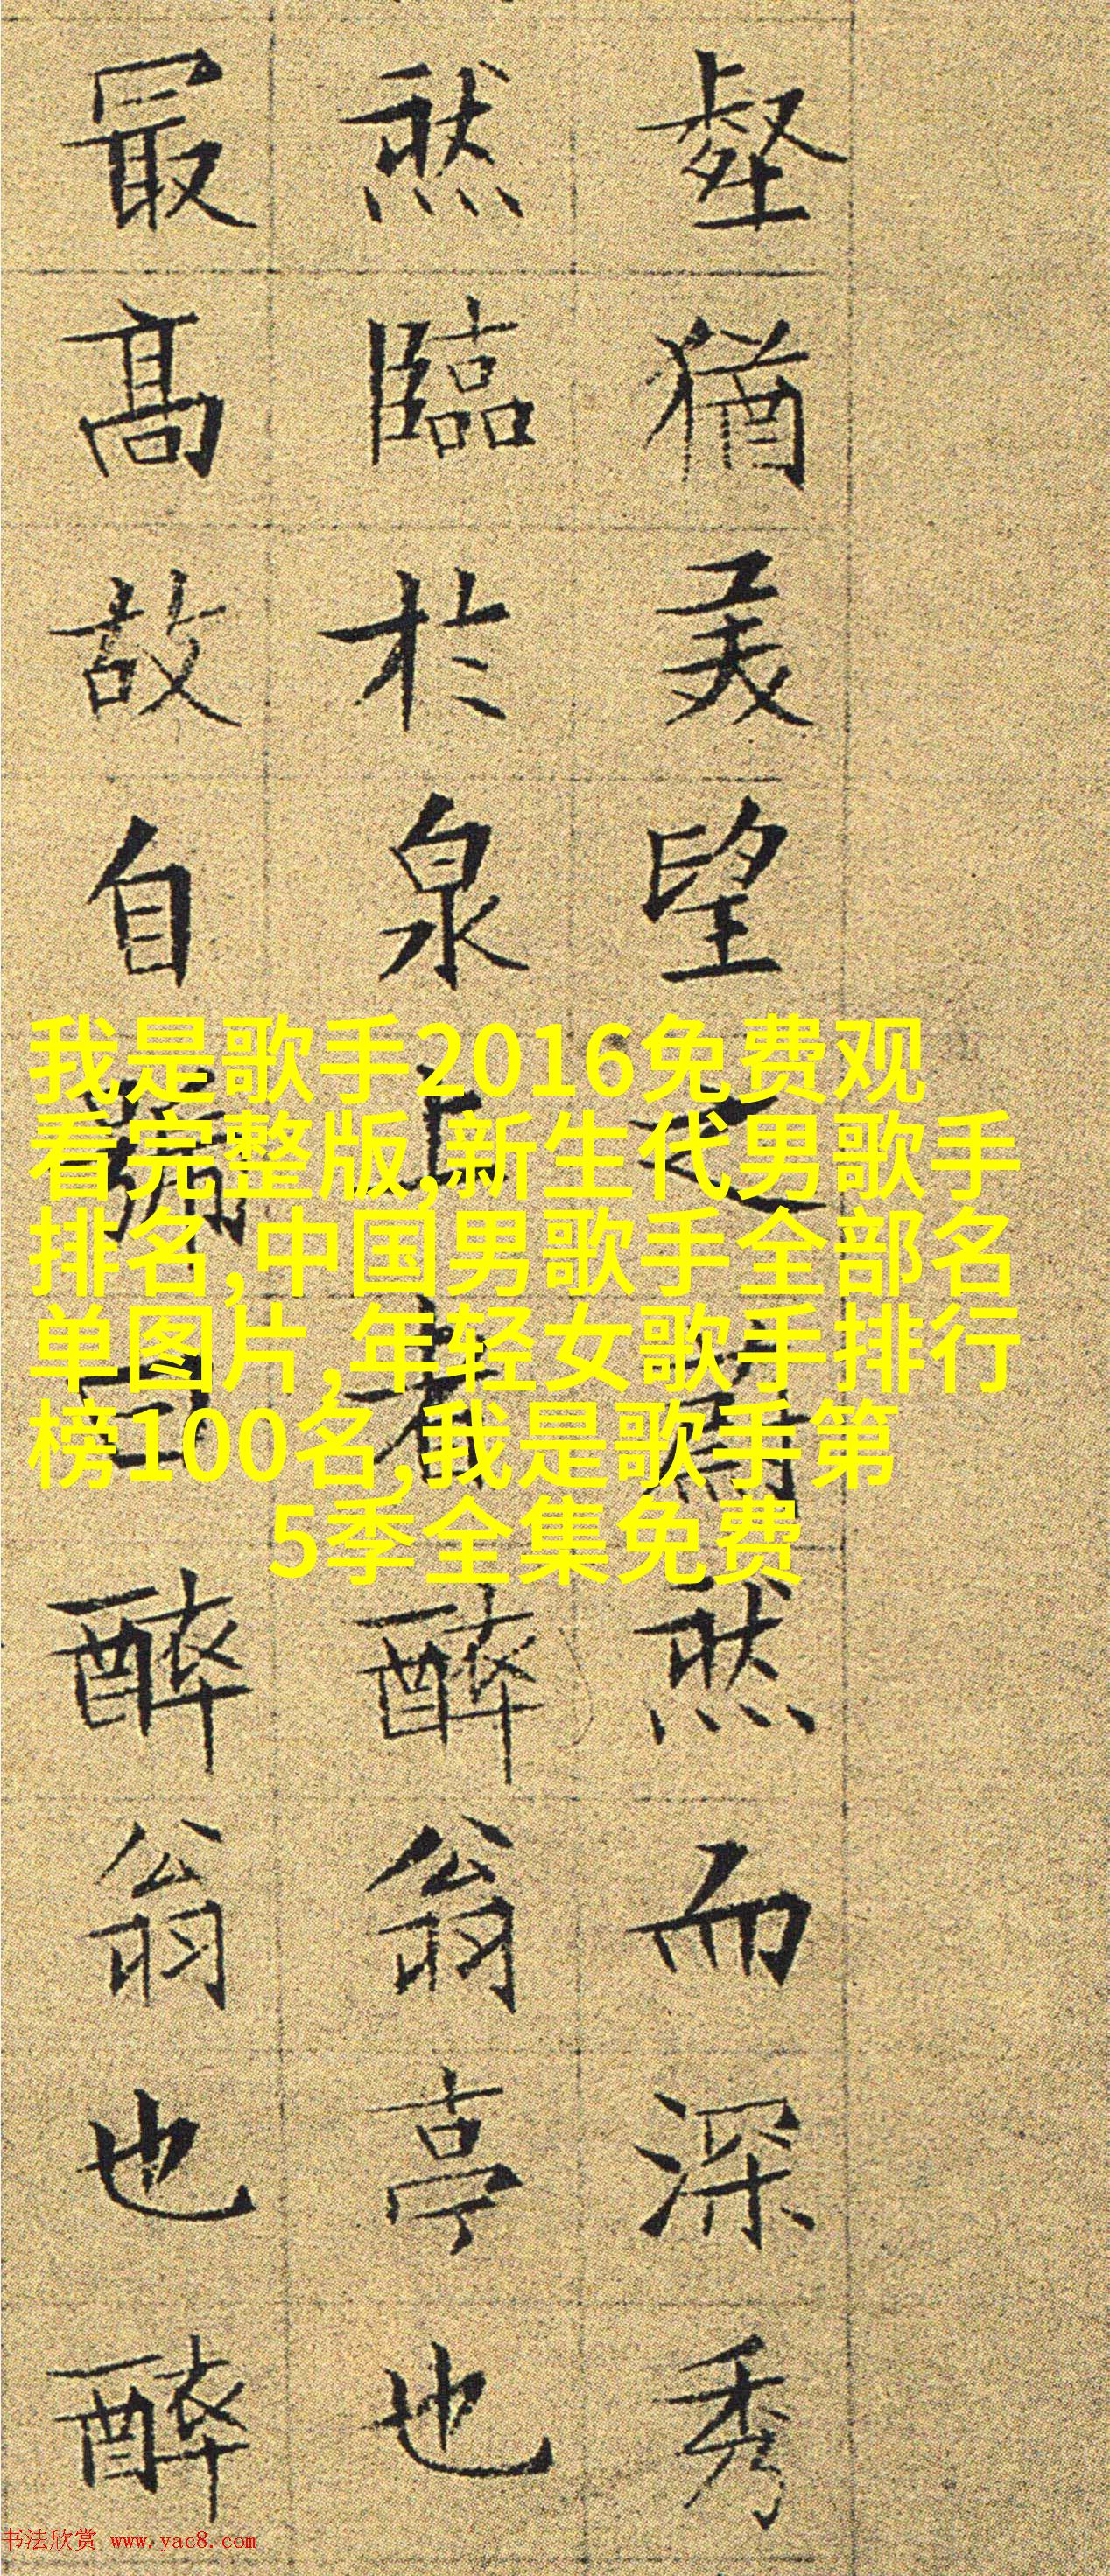 壑猶美望之然而深秀
然臨於泉上者醉翁亭也
最高故自號曰醉翁也醉
我是歌手2016免费观
看完整版,新生代男歌手
排名,中国男歌手全部名
单图片,年轻女歌手排行
榜100名,我是歌手第
5季全集免费
书法欣赏 www.yac8.com